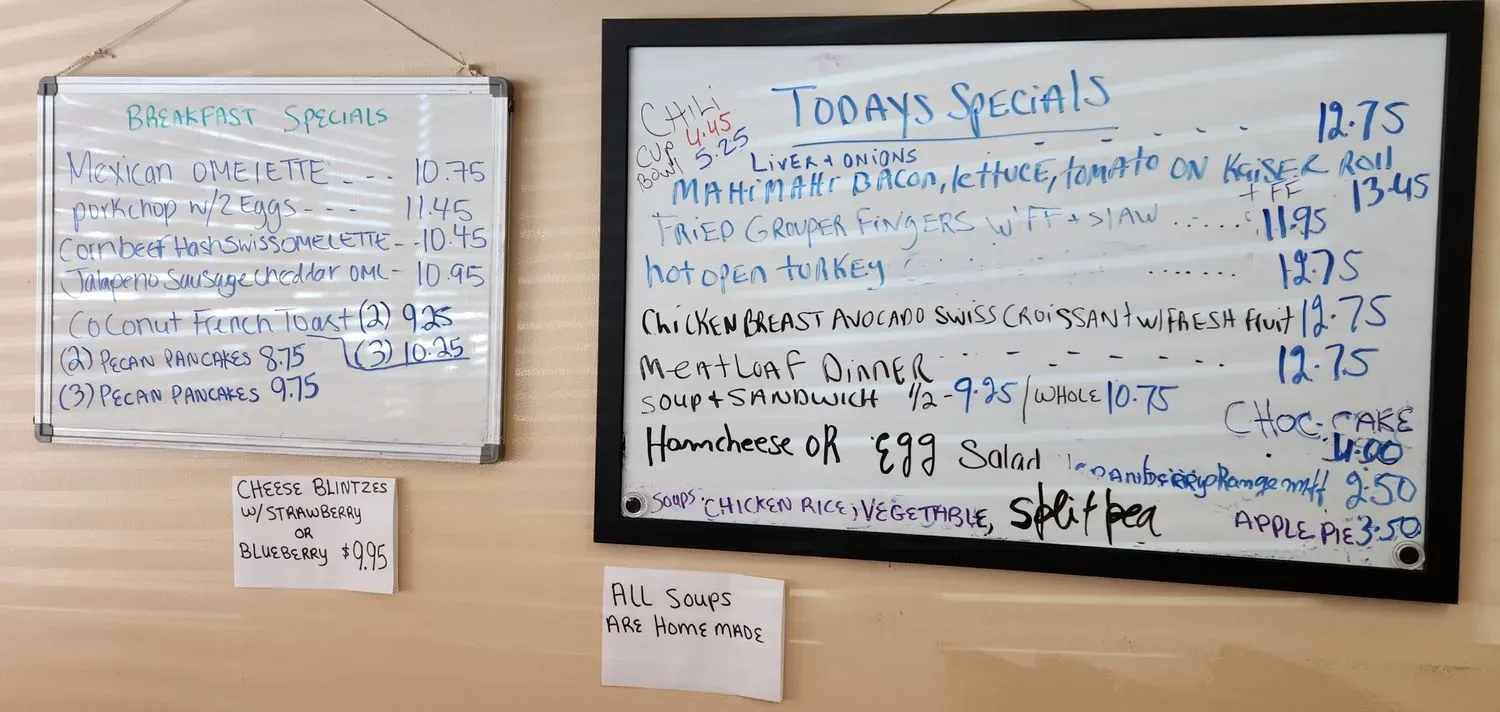 BREAKFAST SPECIALS
Mexican OMELETTE - - - 10.75
porkchop w/2 Eggs - - - 11.45
Cornbeef Hash Swiss OMELETTE - - 10.45
Jalapeno Sausage cheddar OML - 10.95
COCONUT FRENCH TOAST (2) 9.25
(3) 10.25
(2) PECAN PANCAKES 8.75
(3) PECAN PANCAKES 9.75
CHEESE BLINTZES
W/STRAWBERRY
OR
BLUEBERRY $9.95
CHILI
CUP 4.45
BOWL 5.25
TODAYS SPECIALS
LIVER + ONIONS - - - - - 12.75
MAHI MAHI BACON, lettuce, tomato ON KAISER ROLL
+ FF 13.45
FRIED GROUPER FINGERS W/FF + SLAW ...... 11.95
hot open turkey ....... 12.75
CHICKEN BREAST AVOCADO SWISS CROISSANT W/FRESH fruit 12.75
MEATLOAF DINNER - - - - - - 12.75
SOUP + SANDWICH 1/2 - 9.25 / WHOLE 10.75
Ham cheese OR Egg Salad
CHOC. CAKE
4.00
2.50
SOUPS: CHICKEN RICE, VEGETABLE, Split pea
APPLE PIE 3.50
ALL SOUPS
ARE HOMEMADE